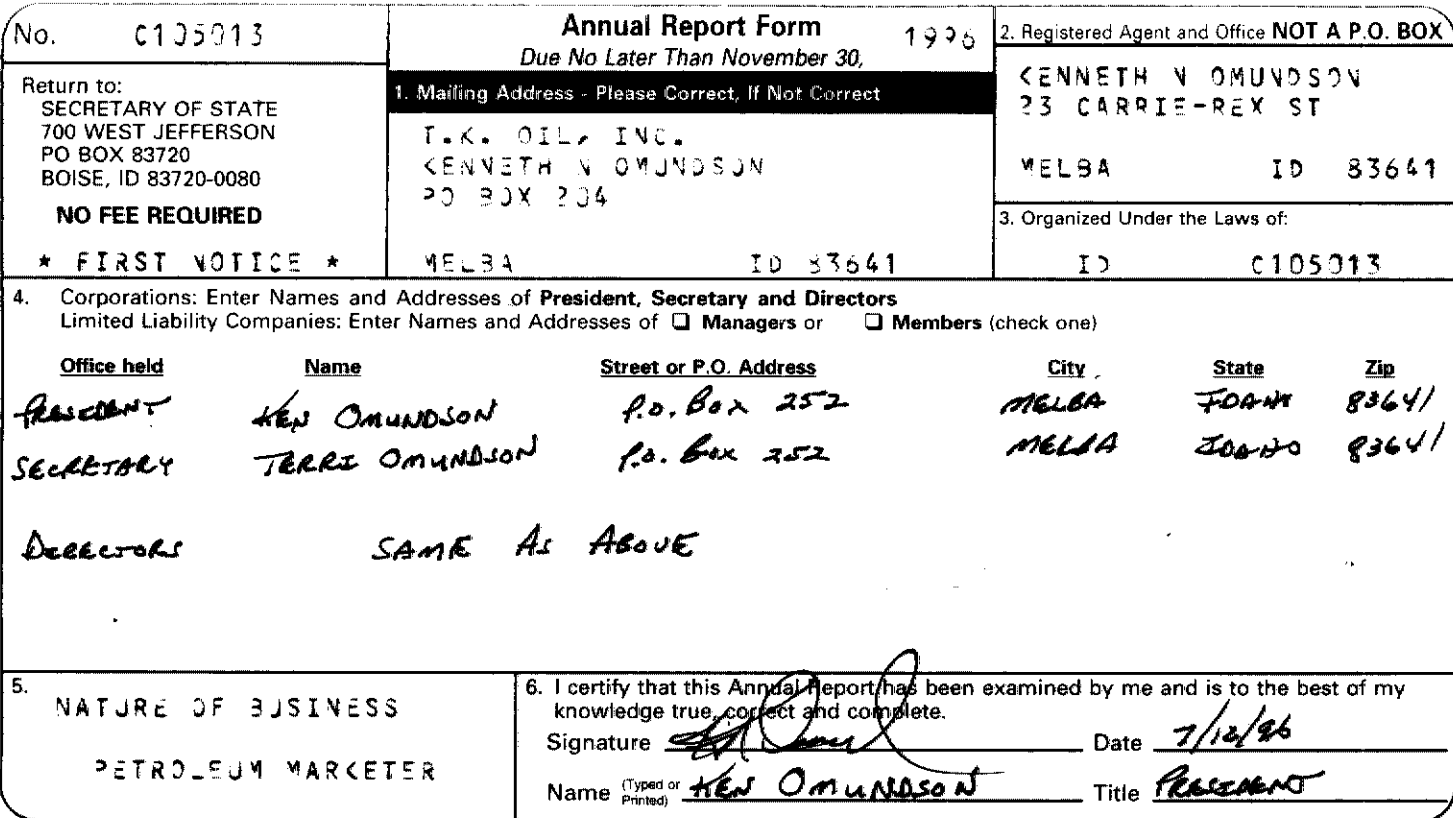 No. C105013
Annual Report Form 1996
Due No Later Than November 30,
Return to:
SECRETARY OF STATE
700 WEST JEFFERSON
PO BOX 83720
BOISE, ID 83720-0080
NO FEE REQUIRED
* FIRST NOTICE *
1. Mailing Address - Please Correct, If Not Correct
T.K. OIL, INC.
KENNETH N OMUNDSON
PO BOX 204
MELBA ID 83641
2. Registered Agent and Office NOT A P.O. BOX
KENNETH N OMUNDSON
23 CARRIE-REX ST
MELBA ID 83641
3. Organized Under the Laws of:
ID C105013
4. Corporations: Enter Names and Addresses of President, Secretary and Directors
Limited Liability Companies: Enter Names and Addresses of ❑ Managers or ❑ Members (check one)
Office held Name Street or P.O. Address City State Zip
PRESIDENT KEN OMUNDSON P.O. BOX 252 MELBA IDAHO 83641
SECRETARY TERRI OMUNDSON P.O. Box 252 MELBA IDAHO 83641
DIRECTORS SAME AS ABOVE
5.
NATURE OF BUSINESS
PETROLEUM MARKETER
6. I certify that this Annual Report has been examined by me and is to the best of my
knowledge true, correct and complete.
Signature Date 7/12/96
Name (Typed or Printed) KEN OMUNDSON Title PRESIDENT